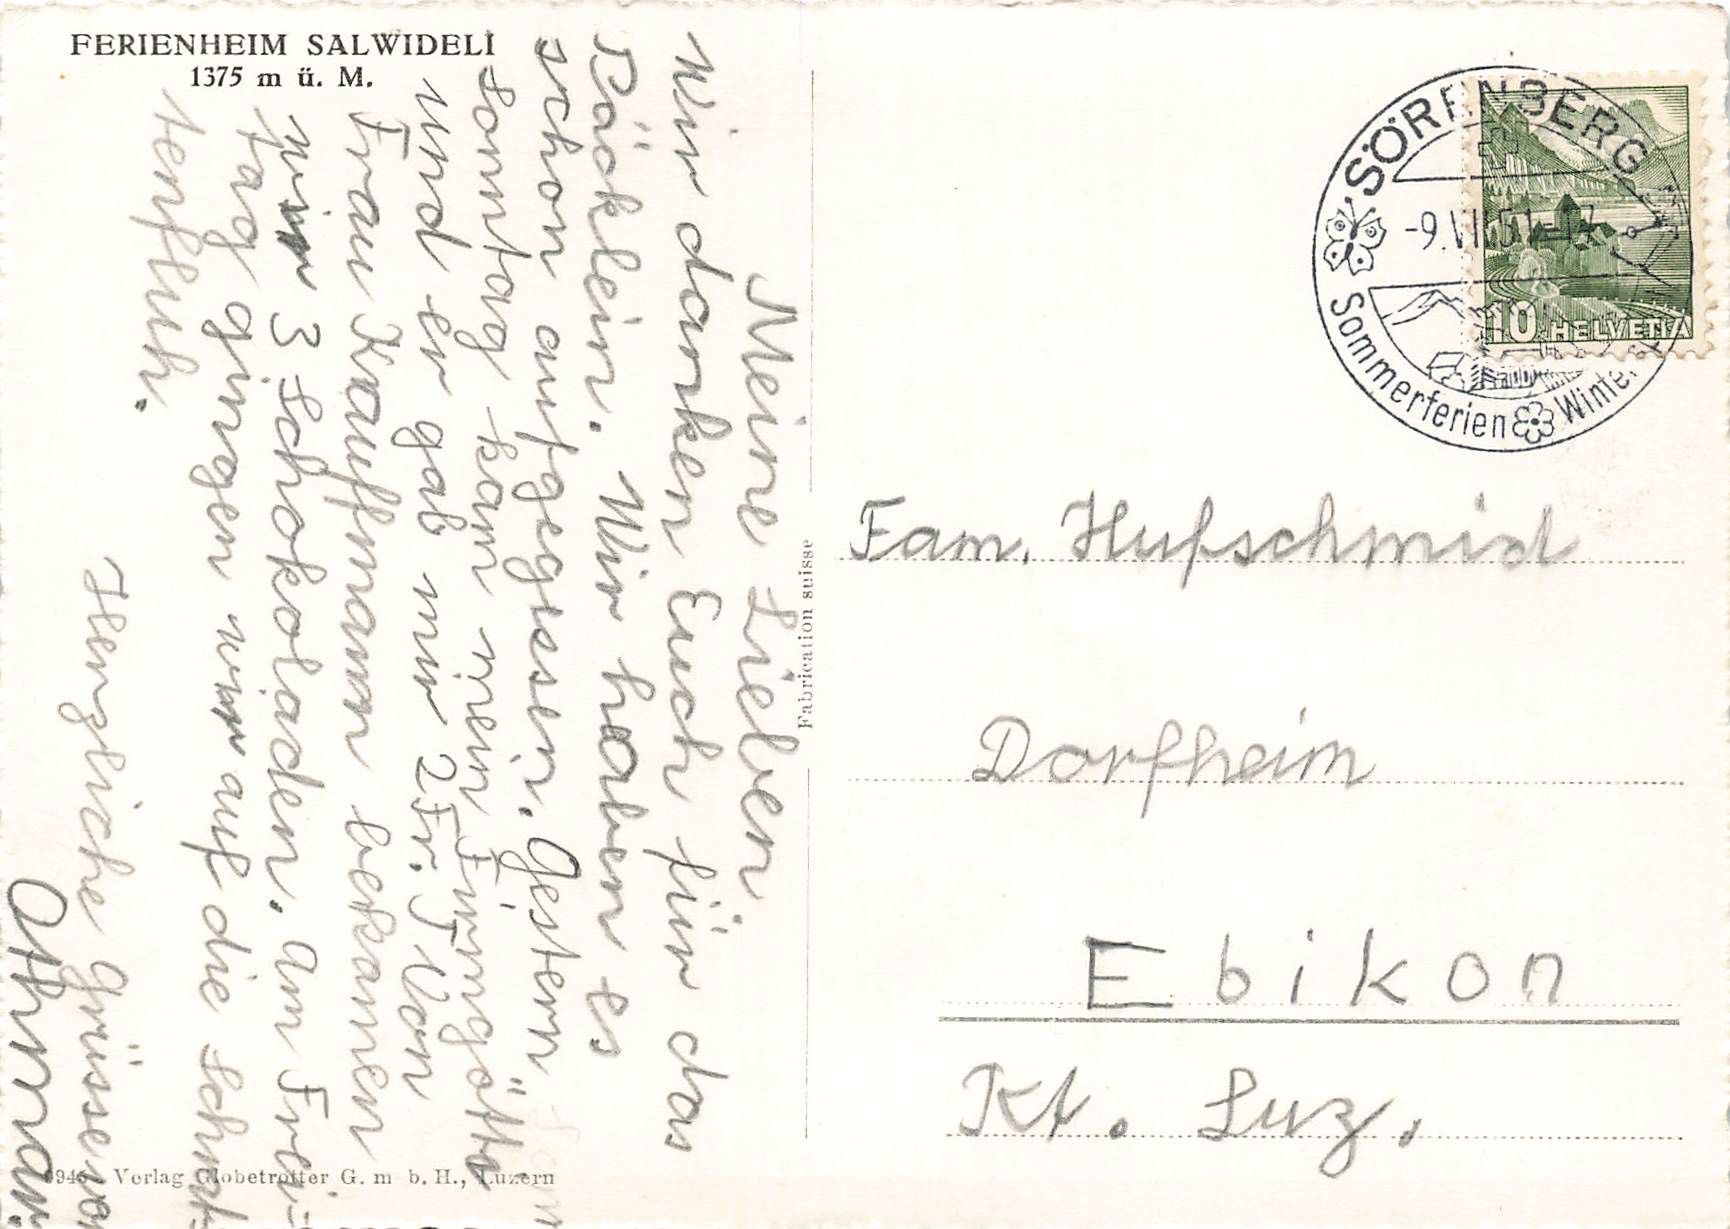 FERIENHEIM SALWIDELI
1375 m ü. M.
Meine Lieben.
Wir danken Euch für das
Päcklein. Wir haben es
schon aufgegessen. Gestern
Sonntag kam mein Firmgötti
und er gab mir 2 Fr. Von
Frau Kauffmann bekamen
wir 3 Schokoladen. Am Frei-
tag gingen wir auf die Schrat-
tenfluh.
Herzliche Grüsse
Othmar
Fabrication suisse
Verlag Globetrotter G. m b. H., Luzern
SÖRENBERG
-9.VII.51-17
Sommerferien Winter
10 HELVETIA
Fam. Hufschmid
Dorfheim
Ebikon
Kt. Luz.